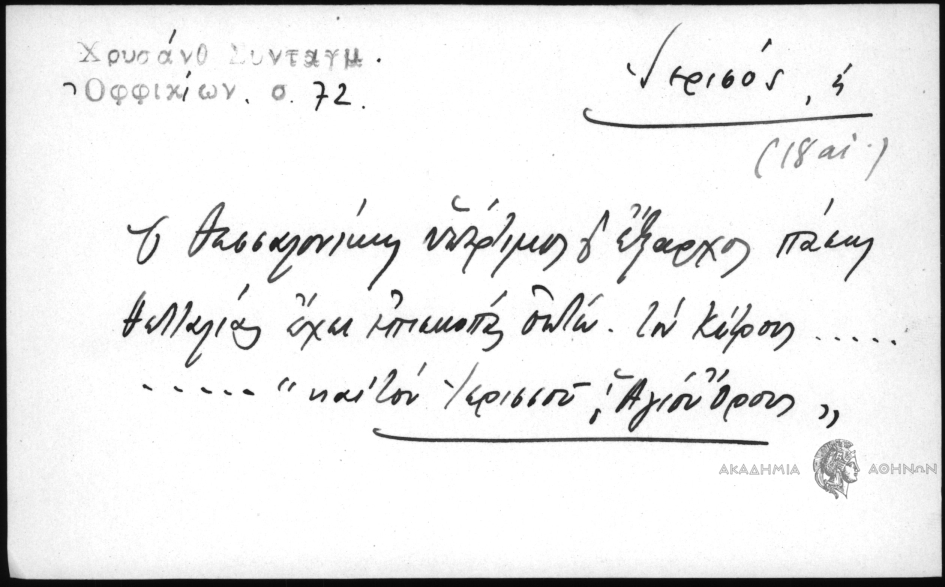 Χρυσάνθ Συνταγμ.
Ὀφφικίων. σ. 72.
Ἱερισός, ἡ
(18 αἰ.)
Ὁ Θεσσαλονίκης ὑπέρτιμος ἔξαρχος πάσης
Θετταλίας ἔχει ἐπισκοπὰς τὸν Κίτρους .....
...... "καὶ τὸν Ἱερισσοῦ, Ἁγίου Ὄρους"
ΑΚΑΔΗΜΙΑ ΑΘΗΝΩΝ